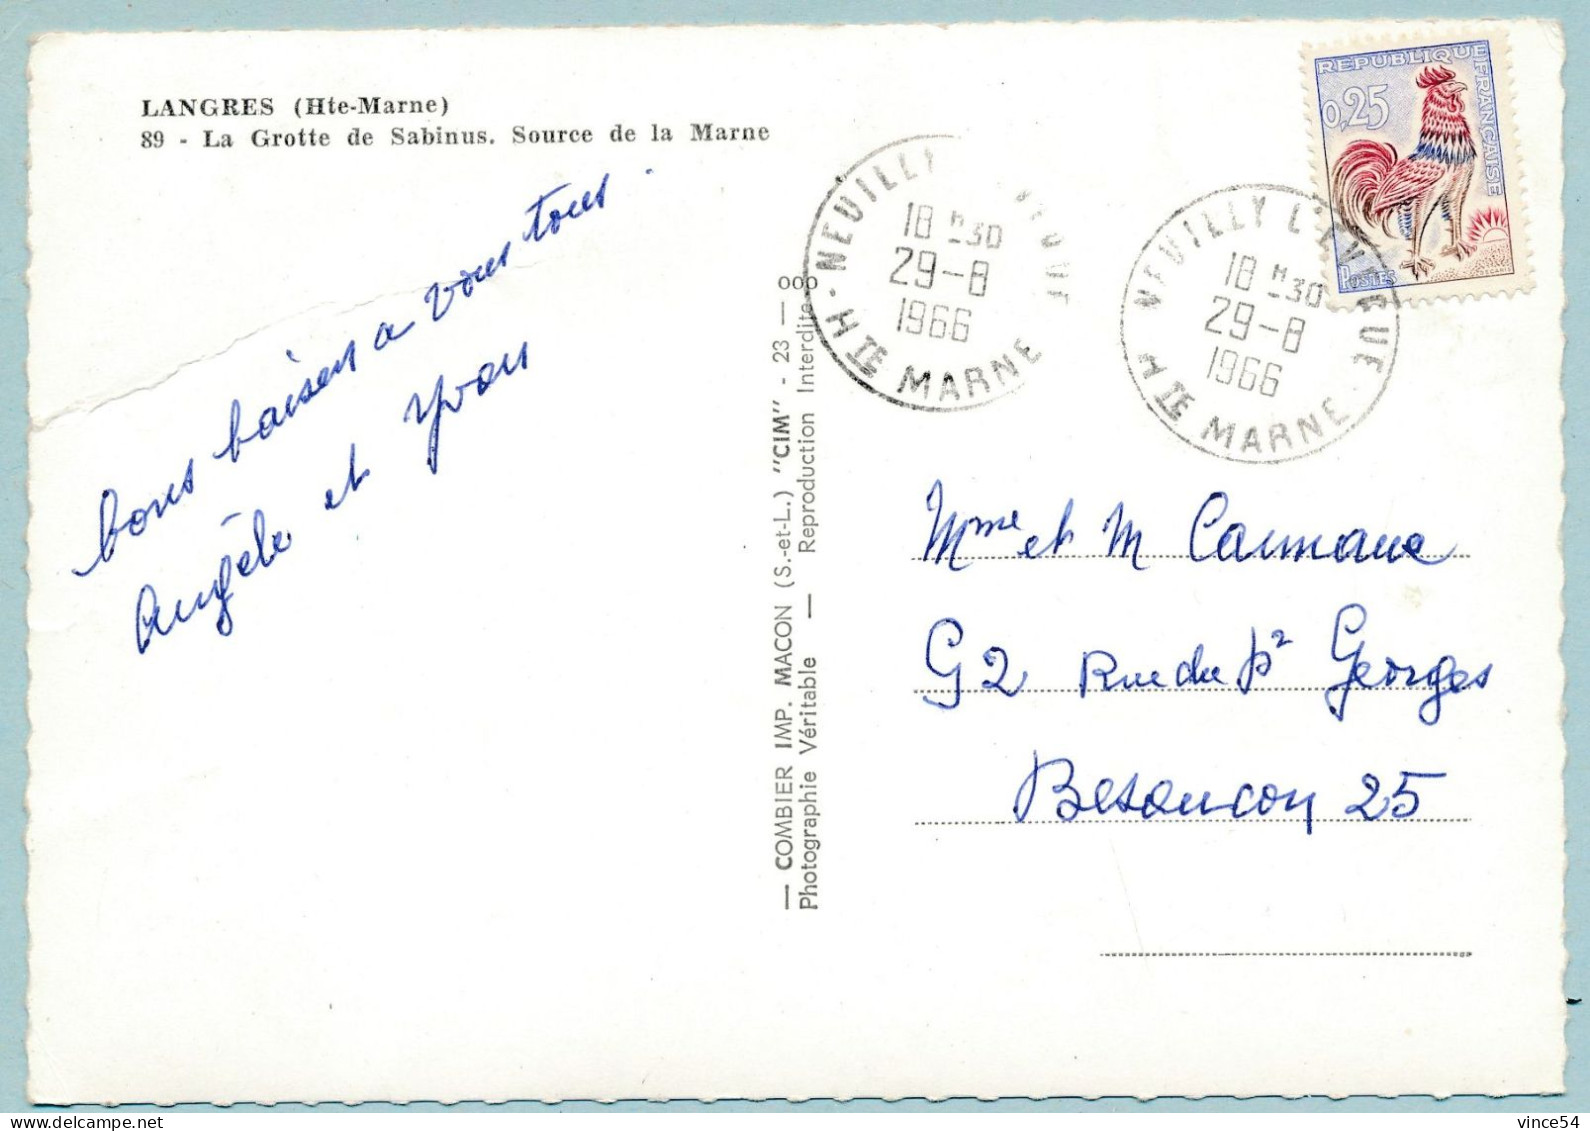 LANGRES (Hte-Marne)
89 - La Grotte de Sabinus. Source de la Marne
bons baisers a vous tous.
Angèle et Yvon
— COMBIER IMP. MACON (S.-et-L.) "CIM" - 23 — ooo
Photographie Véritable — Reproduction Interdite
NEUILLY
18 H 30
29-8
1966
HTE MARNE
NEUILLY L'EVEQUE
18 H 30
29-8
1966
HTE MARNE
REPUBLIQUE FRANÇAISE
0,25
POSTES
DECARIS
Mme et M
G2 Rue du pt Georges
Besancon 25
vince54